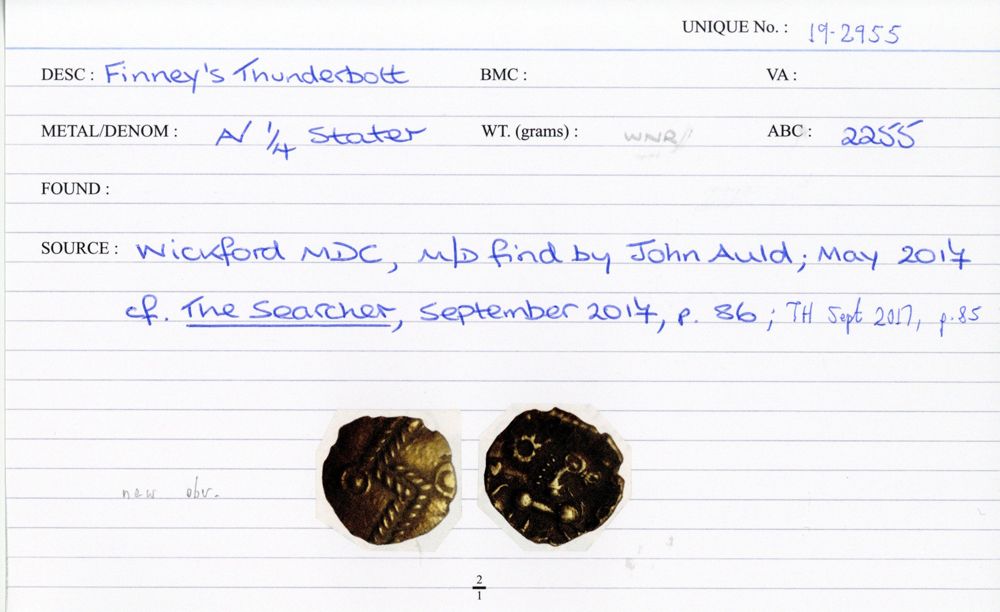 UNIQUE No. : 19-2955
DESC : Finney's Thunderbolt BMC : VA :
METAL/DENOM : A/ 1/4 Stater WT. (grams) : WNR// ABC : 2255
FOUND :
SOURCE : Wickford MDC, M/D find by John Auld; May 2017
cf. The Searcher, September 2017, p. 86 ; TH Sept 2017, p.85
new obv.
2/1